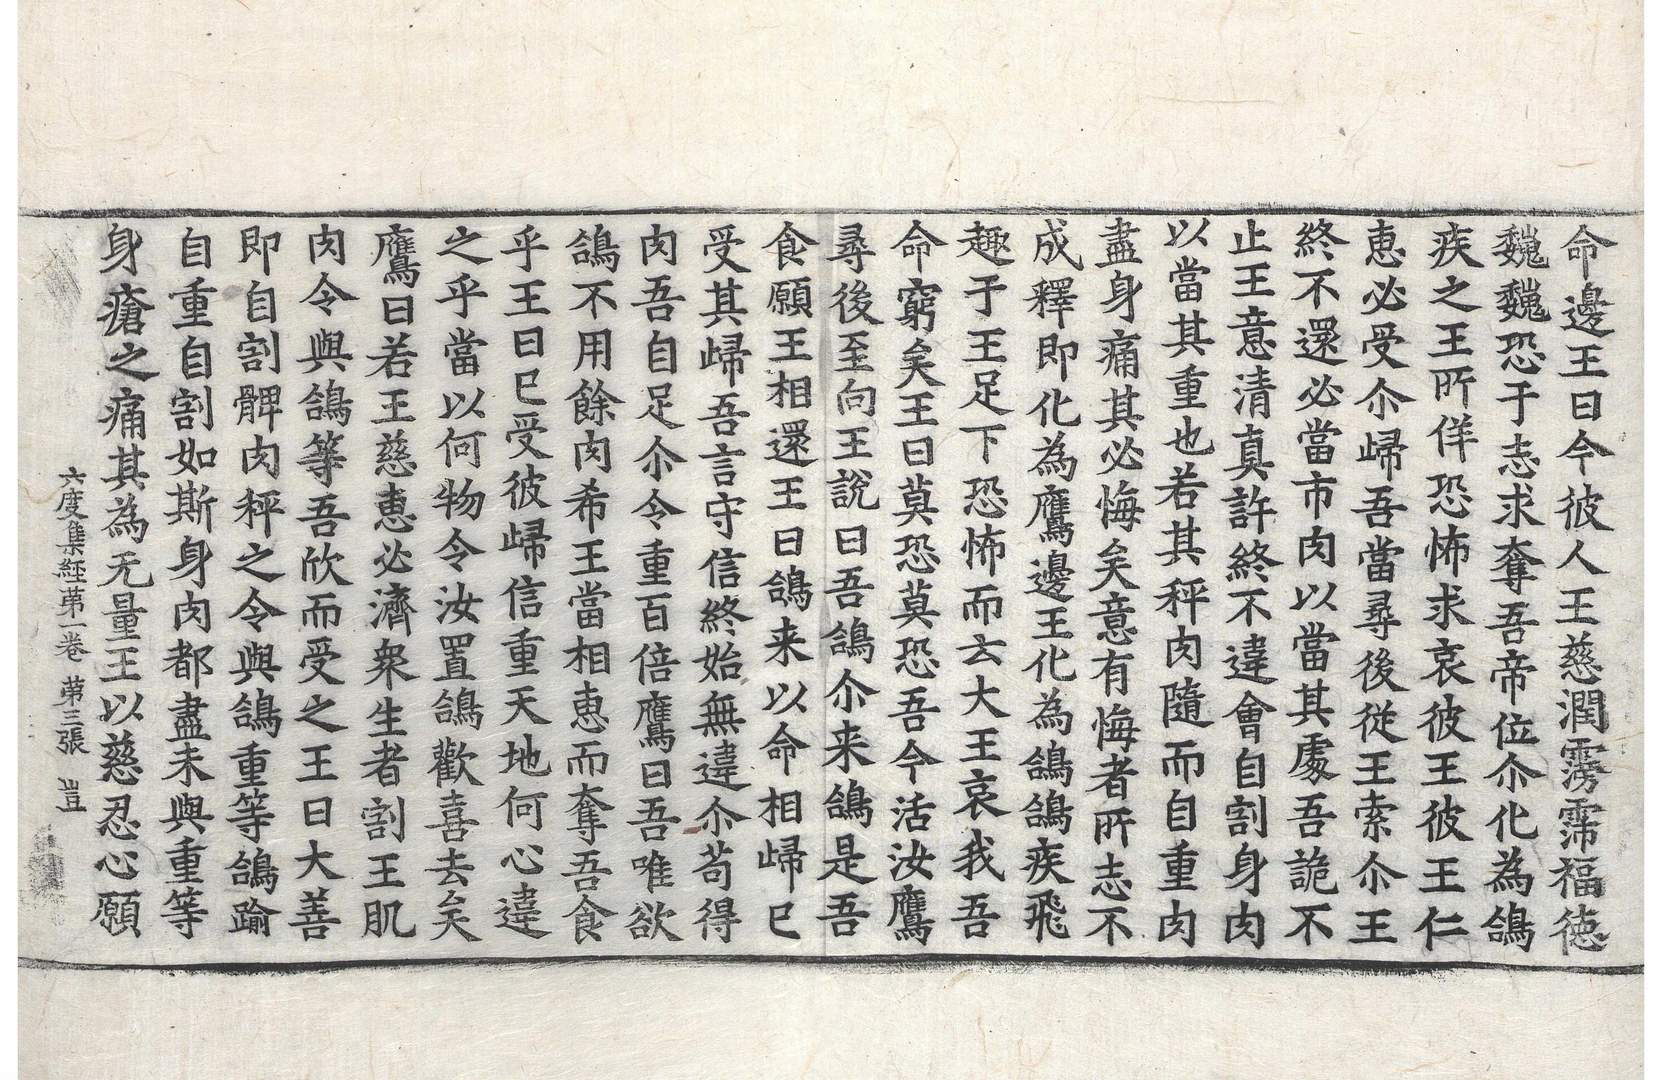 命邊王曰今彼人王慈潤霶霈福德
魏魏恐于志求奪吾帝位尒化為鴿
疾之王所佯恐怖求哀彼王彼王仁
惠必受尒歸吾當尋後從王索尒王
終不還必當市肉以當其處吾詭不
止王意清真許終不違會自割身肉
以當其重也若其秤肉隨而自重肉
盡身痛其必悔矣意有悔者所志不
成釋即化為鷹邊王化為鴿鴿疾飛
趣于王足下恐怖而云大王哀我吾
命窮矣王曰莫恐莫恐吾今活汝鷹
尋後至向王說曰吾鴿尒来鴿是吾
食願王相還王曰鴿来以命相歸已
受其歸吾言守信終始無違尒苟得
肉吾自足尒令重百倍鷹曰吾唯欲
鴿不用餘肉希王當相惠而奪吾食
乎王曰已受彼歸信重天地何心違
之乎當以何物令汝置鴿歡喜去矣
鷹曰若王慈惠必濟衆生者割王肌
肉令與鴿等吾欣而受之王曰大善
即自割髀肉秤之令與鴿重等鴿踰
自重自割如斯身肉都盡未與重等
身瘡之痛其為无量王以慈忍心願
六度集経苐一卷 苐三張 豈